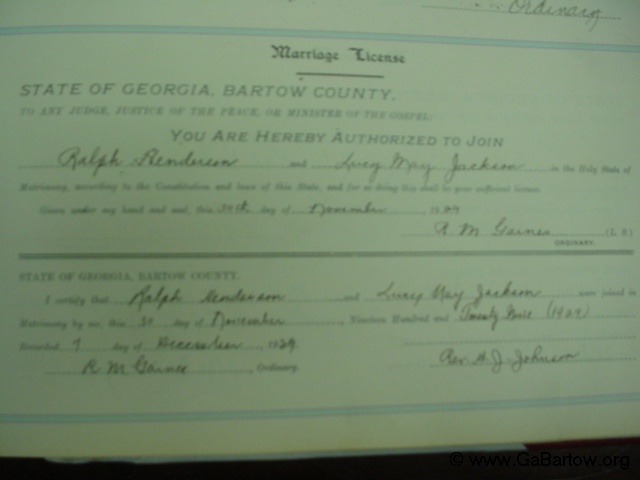 Ordinary
Marriage License
STATE OF GEORGIA, BARTOW COUNTY.
TO ANY JUDGE, JUSTICE OF THE PEACE, OR MINISTER OF THE GOSPEL:
YOU ARE HEREBY AUTHORIZED TO JOIN
Ralph Henderson and Lucy May Jackson in the Holy State of
Matrimony, according to the Constitution and laws of this State, and for so doing this shall be your sufficient license.
Given under my hand and seal, this 30th day of November 1929
R. M. Gaines (L. S.)
ORDINARY.
STATE OF GEORGIA, BARTOW COUNTY.
I certify that Ralph Henderson and Lucy May Jackson were joined in
Matrimony by me, this day of November, Nineteen Hundred and Twenty Nine (1929)
Recorded 7 day of December 1929
R. M. Gaines, Ordinary. Rev. A. J. Johnson
© www.GaBartow.org